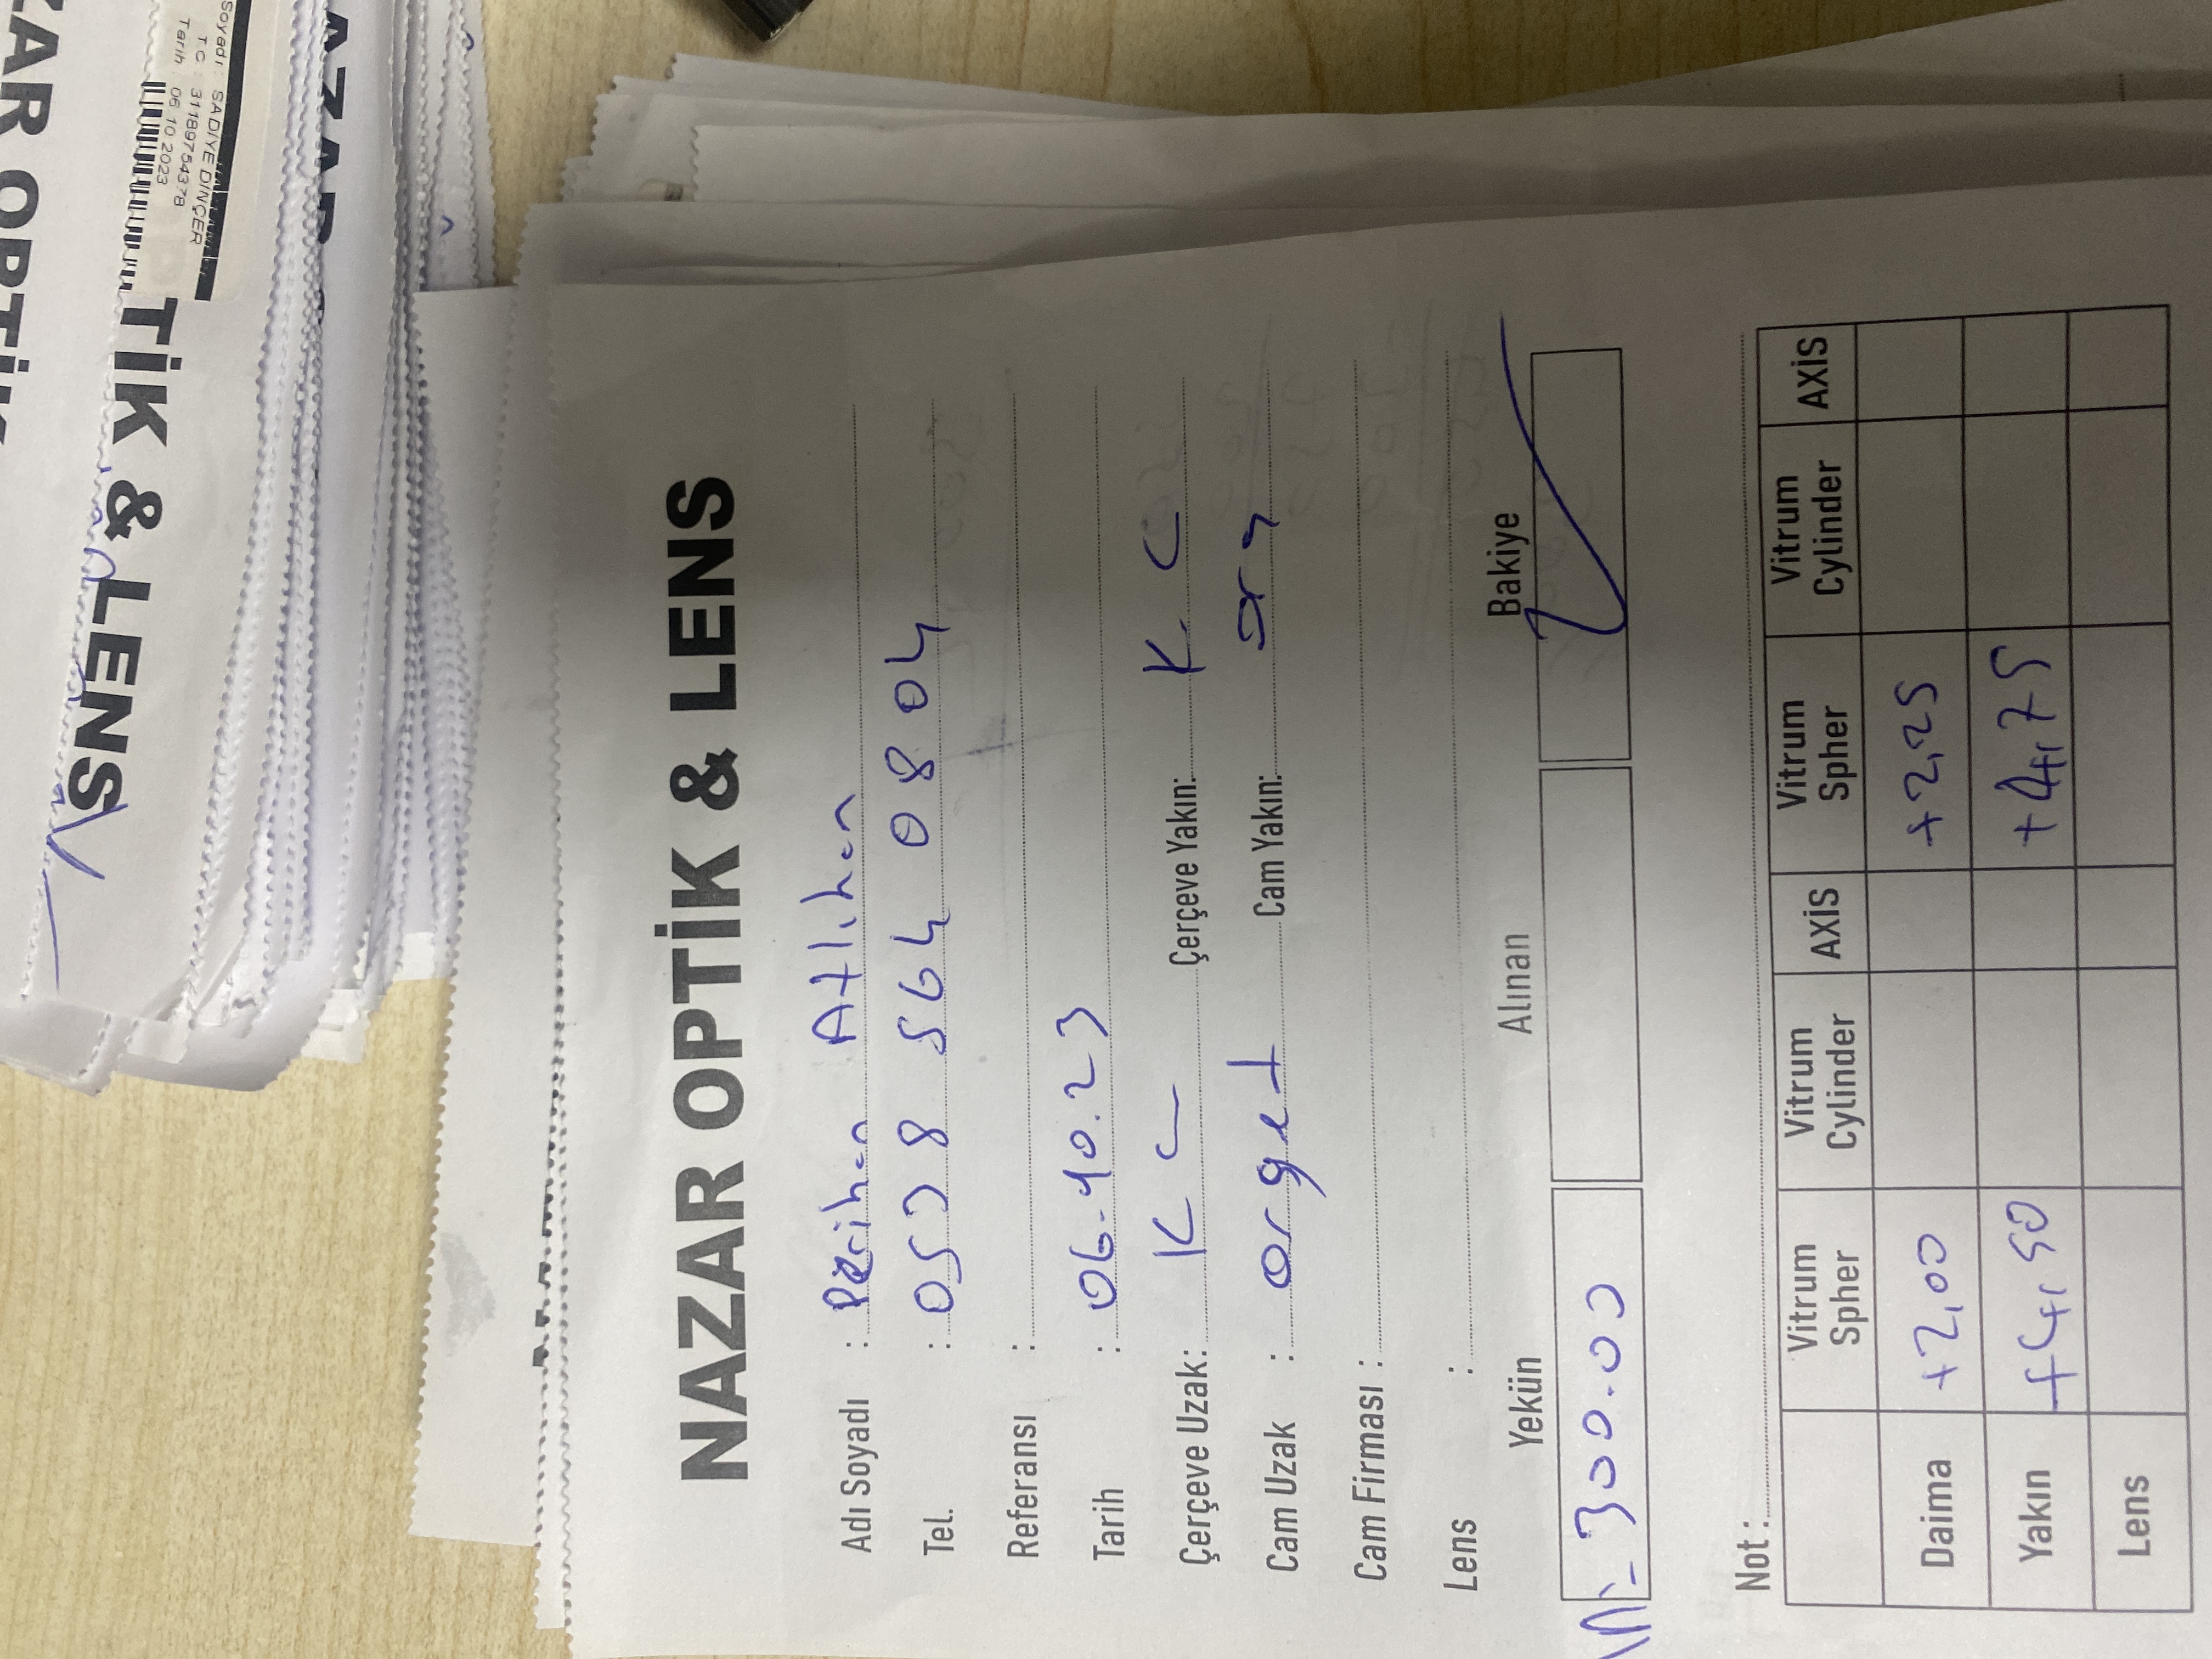 ZAR OPTİK
TİK & LENS
Soyadı : SADİYE DİNÇER
T.C : 31189754378
Tarih : 06.10.2023
NAZAR OPTİK & LENS
Adı Soyadı : Perihan Atlıhan
Tel. : 0538 564 0804
Referansı :
Tarih : 06.10.23
Çerçeve Uzak: K C Çerçeve Yakın: K. C
Cam Uzak : orget Cam Yakın: org
Cam Firması :
Lens :
Yekün Alınan Bakiye
300.00
Not :
Vitrum Spher Vitrum Cylinder AXİS Vitrum Spher Vitrum Cylinder AXİS
Daima +2,00 +2,25
Yakın +4,50 +4,75
Lens